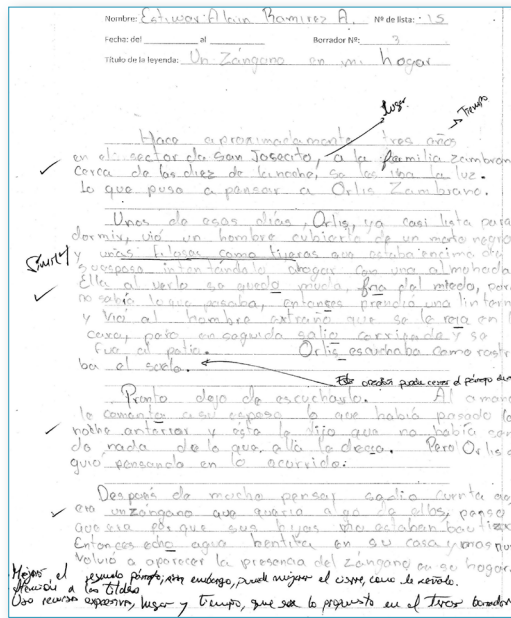 Nombre: Estiwar Alain Ramirez A. Nº de lista: 15
Fecha: del al Borrador Nº: 3
Título de la leyenda: Un Zángano en mi hogar
lugar Tiempo
Hace aproximadamente tres años
en el sector de San Josecito, a la familia Zambran
Cerca de las diez de la noche, se les iba la luz.
Lo que puso a pensar a Orlis Zambrano.
Unos de esos días, Orlis, ya casi lista para
dormir, vió un hombre cubierto de un manto negro
Simil y unas filosas como tijeras que estaba encima de
su esposo intentándolo ahogar con una almohada
Ella al verlo se quedo muda, fria del miedo, pero
no sabía lo que pasaba, entonces prendió una lintern
y vió al hombre extraño que se le reía en l
cara, pero en seguida salio corriendo y se
fue al patio. Orlis escuchaba como rastr
ba el suelo.
Esta oración puede cerrar el párrafo
Pronto dejo de escucharlo. Al aman
le comento a su esposo lo que había pasado la
noche anterior y este le dijo que no había sen
do nada de lo que ella le decía. Pero Orlis
guió pensando en lo ocurrido.
Después de mucho pensar se dio cuenta
era un zángano que quería algo de ellos, penso
que era por que sus hijos no estaban bautiza
Entonces echo agua bentita en su casa y mas nun
volvió a aparecer la presencia del zángano en su hogar
Mejoró el segundo párrafo, sin embargo, puede mejorar el cierre, como le señalo.
Atención a las tildes
Uso recursos expresivos, lugar y tiempo, que sea lo propuesto en el tercer borrador